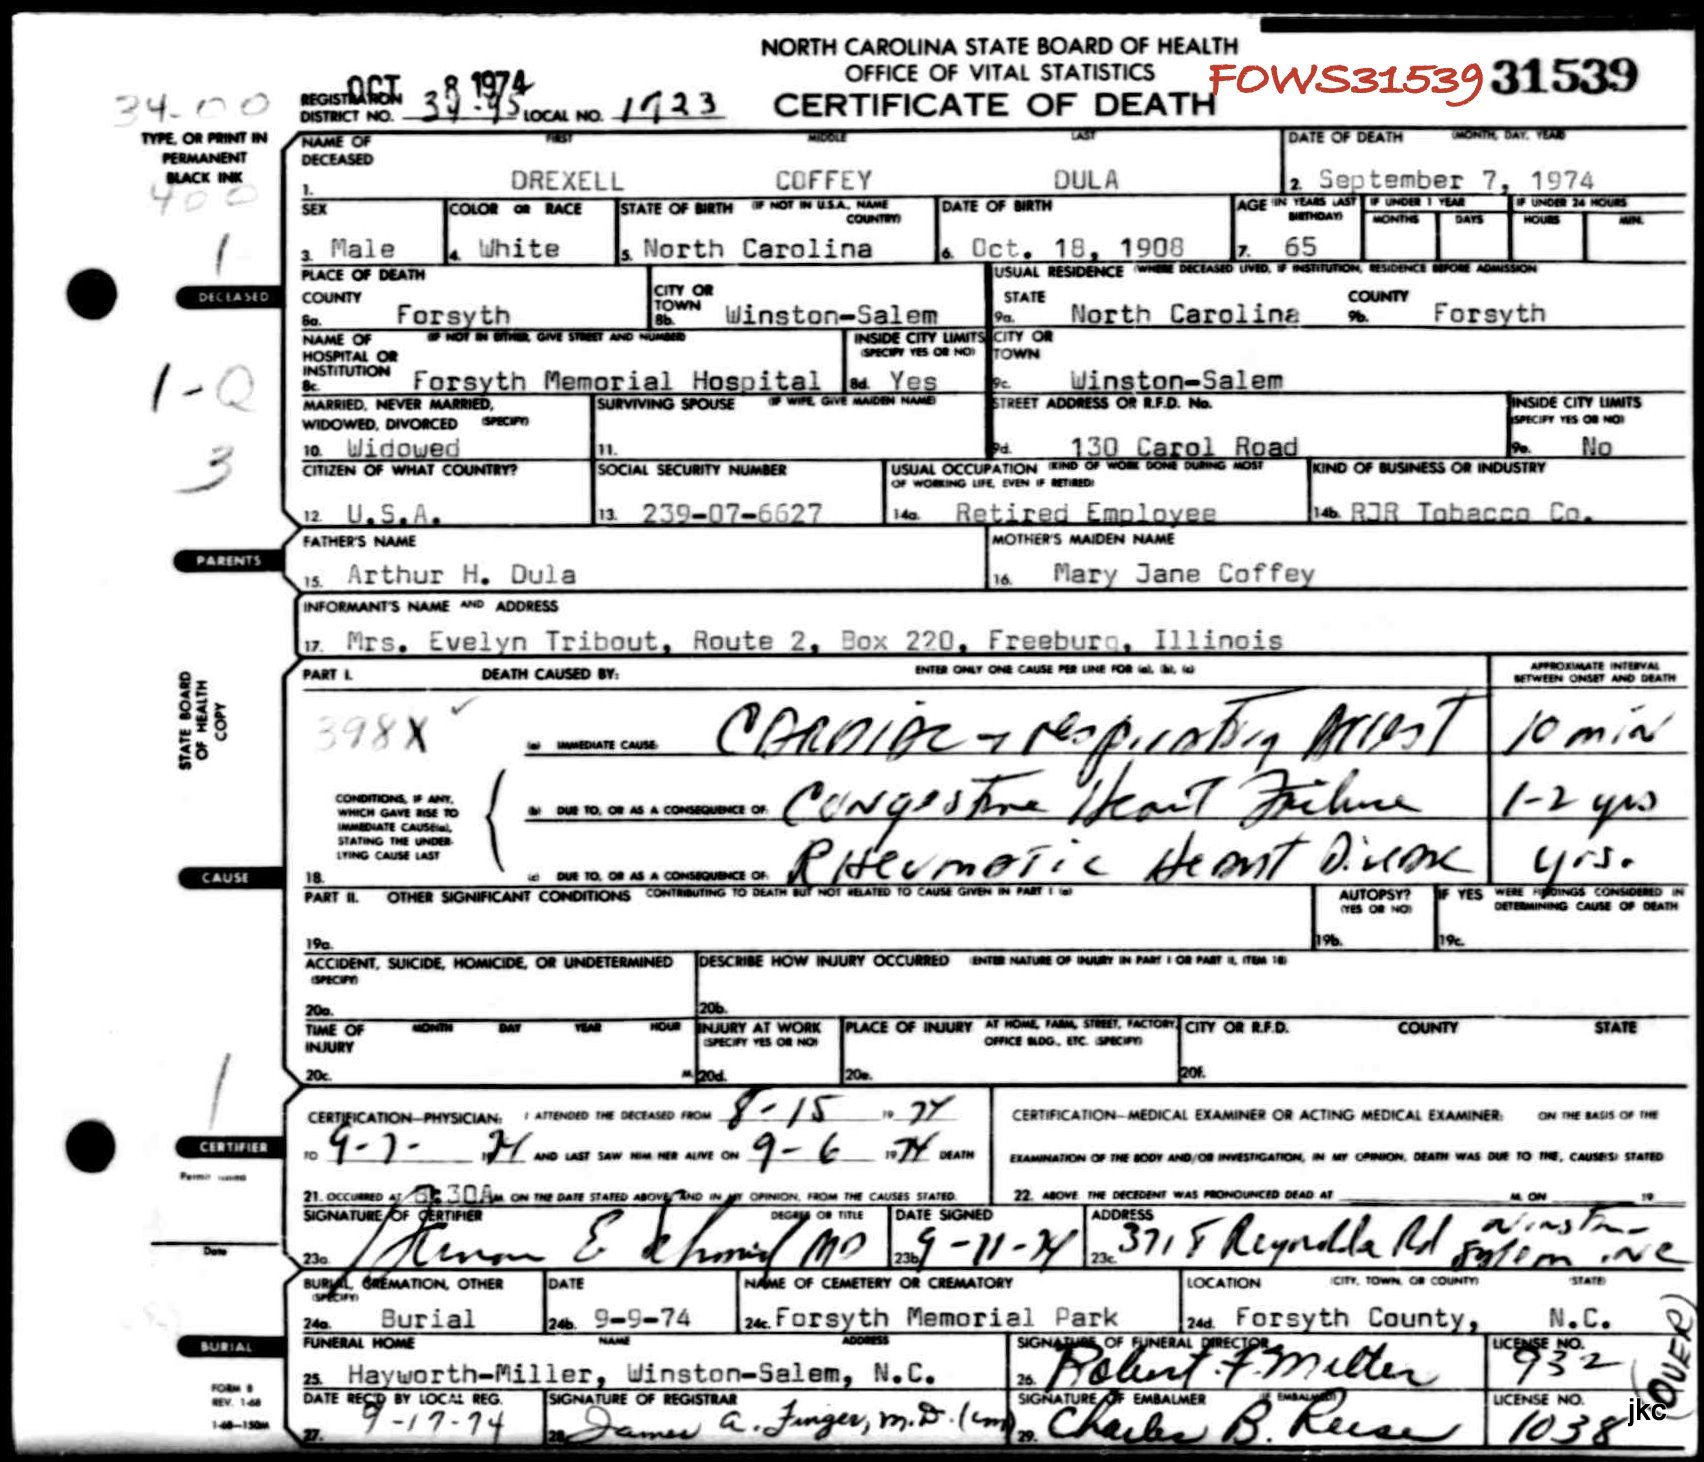 NORTH CAROLINA STATE BOARD OF HEALTH
OFFICE OF VITAL STATISTICS
CERTIFICATE OF DEATH
FOWS31539 31539
OCT 8 1974
34-00
REGISTRATION DISTRICT NO. 34-95 LOCAL NO. 1723
TYPE, OR PRINT IN
PERMANENT
BLACK INK
400
1
DECEASED
1-0
3
NAME OF DECEASED FIRST MIDDLE LAST
1. DREXELL COFFEY DULA
DATE OF DEATH (MONTH, DAY, YEAR)
2. September 7, 1974
SEX
3. Male
COLOR OR RACE
4. White
STATE OF BIRTH (IF NOT IN U.S.A., NAME COUNTRY)
5. North Carolina
DATE OF BIRTH
6. Oct. 18, 1908
AGE (IN YEARS LAST BIRTHDAY)
7. 65
IF UNDER 1 YEAR
MONTHS DAYS
IF UNDER 24 HOURS
HOURS MIN.
PLACE OF DEATH
COUNTY
8a. Forsyth
CITY OR TOWN
8b. Winston-Salem
USUAL RESIDENCE (WHERE DECEASED LIVED, IF INSTITUTION, RESIDENCE BEFORE ADMISSION
STATE
9a. North Carolina
COUNTY
9b. Forsyth
NAME OF HOSPITAL OR INSTITUTION (IF NOT IN EITHER, GIVE STREET AND NUMBER)
8c. Forsyth Memorial Hospital
INSIDE CITY LIMITS (SPECIFY YES OR NO)
8d. Yes
CITY OR TOWN
9c. Winston-Salem
MARRIED, NEVER MARRIED, WIDOWED, DIVORCED (SPECIFY)
10. Widowed
SURVIVING SPOUSE (IF WIFE, GIVE MAIDEN NAME)
11.
STREET ADDRESS OR R.F.D. No.
9d. 130 Carol Road
INSIDE CITY LIMITS (SPECIFY YES OR NO)
9e. No
CITIZEN OF WHAT COUNTRY?
12. U.S.A.
SOCIAL SECURITY NUMBER
13. 239-07-6627
USUAL OCCUPATION (KIND OF WORK DONE DURING MOST OF WORKING LIFE, EVEN IF RETIRED)
14a. Retired Employee
KIND OF BUSINESS OR INDUSTRY
14b. RJR Tobacco Co.
PARENTS
FATHER'S NAME
15. Arthur H. Dula
MOTHER'S MAIDEN NAME
16. Mary Jane Coffey
INFORMANT'S NAME AND ADDRESS
17. Mrs. Evelyn Tribout, Route 2, Box 220, Freeburg, Illinois
STATE BOARD
OF HEALTH
COPY
PART I. DEATH CAUSED BY: ENTER ONLY ONE CAUSE PER LINE FOR (a), (b), (c)
APPROXIMATE INTERVAL
BETWEEN ONSET AND DEATH
398X
(a) IMMEDIATE CAUSE: Cardiac + respiratory Arrest 10 min
CONDITIONS, IF ANY,
WHICH GAVE RISE TO
IMMEDIATE CAUSE(a),
STATING THE UNDER-
LYING CAUSE LAST
(b) DUE TO, OR AS A CONSEQUENCE OF: Congestive Heart Failure 1-2 yrs
CAUSE
18. (c) DUE TO, OR AS A CONSEQUENCE OF: Rheumatic Heart Disease yrs.
PART II. OTHER SIGNIFICANT CONDITIONS CONTRIBUTING TO DEATH BUT NOT RELATED TO CAUSE GIVEN IN PART I (a)
19a.
AUTOPSY? (YES OR NO)
19b.
IF YES WERE FINDINGS CONSIDERED IN DETERMINING CAUSE OF DEATH
19c.
ACCIDENT, SUICIDE, HOMICIDE, OR UNDETERMINED (SPECIFY)
20a.
DESCRIBE HOW INJURY OCCURRED (ENTER NATURE OF INJURY IN PART I OR PART II, ITEM 18)
20b.
TIME OF INJURY MONTH DAY YEAR HOUR
20c. M.
INJURY AT WORK (SPECIFY YES OR NO)
20d.
PLACE OF INJURY AT HOME, FARM, STREET, FACTORY, OFFICE BLDG., ETC. (SPECIFY)
20e.
CITY OR R.F.D. COUNTY STATE
20f.
1
CERTIFIER
Permit issued
Date
CERTIFICATION—PHYSICIAN: I ATTENDED THE DECEASED FROM 8-15 19 74
TO 9-7- 1974 AND LAST SAW HIM HER ALIVE ON 9-6 1974 DEATH
21. OCCURRED AT 6:30A M. ON THE DATE STATED ABOVE, AND IN MY OPINION, FROM THE CAUSES STATED.
CERTIFICATION—MEDICAL EXAMINER OR ACTING MEDICAL EXAMINER: ON THE BASIS OF THE
EXAMINATION OF THE BODY AND/OR INVESTIGATION, IN MY OPINION, DEATH WAS DUE TO THE, CAUSE(S) STATED
22. ABOVE. THE DECEDENT WAS PRONOUNCED DEAD AT M. ON 19
SIGNATURE OF CERTIFIER DEGREE OR TITLE
23a. E Schmid MD
DATE SIGNED
23b. 9-11-74
ADDRESS
23c. 3718 Reynolda Rd Winston-Salem, NC
BURIAL
BURIAL, CREMATION, OTHER (SPECIFY)
24a. Burial
DATE
24b. 9-9-74
NAME OF CEMETERY OR CREMATORY
24c. Forsyth Memorial Park
LOCATION (CITY, TOWN, OR COUNTY) (STATE)
24d. Forsyth County, N.C.
FUNERAL HOME NAME ADDRESS
25. Hayworth-Miller, Winston-Salem, N.C.
SIGNATURE OF FUNERAL DIRECTOR
26. Robert F. Miller
LICENSE NO.
932
(OVER)
FORM 8
REV. 1-68
1-68—150M
DATE REC'D BY LOCAL REG.
27. 9-17-74
SIGNATURE OF REGISTRAR
28. James A. Finger, M.D. (
SIGNATURE OF EMBALMER (IF EMBALMED)
29. Charles B. Reese
LICENSE NO.
1038
jkc